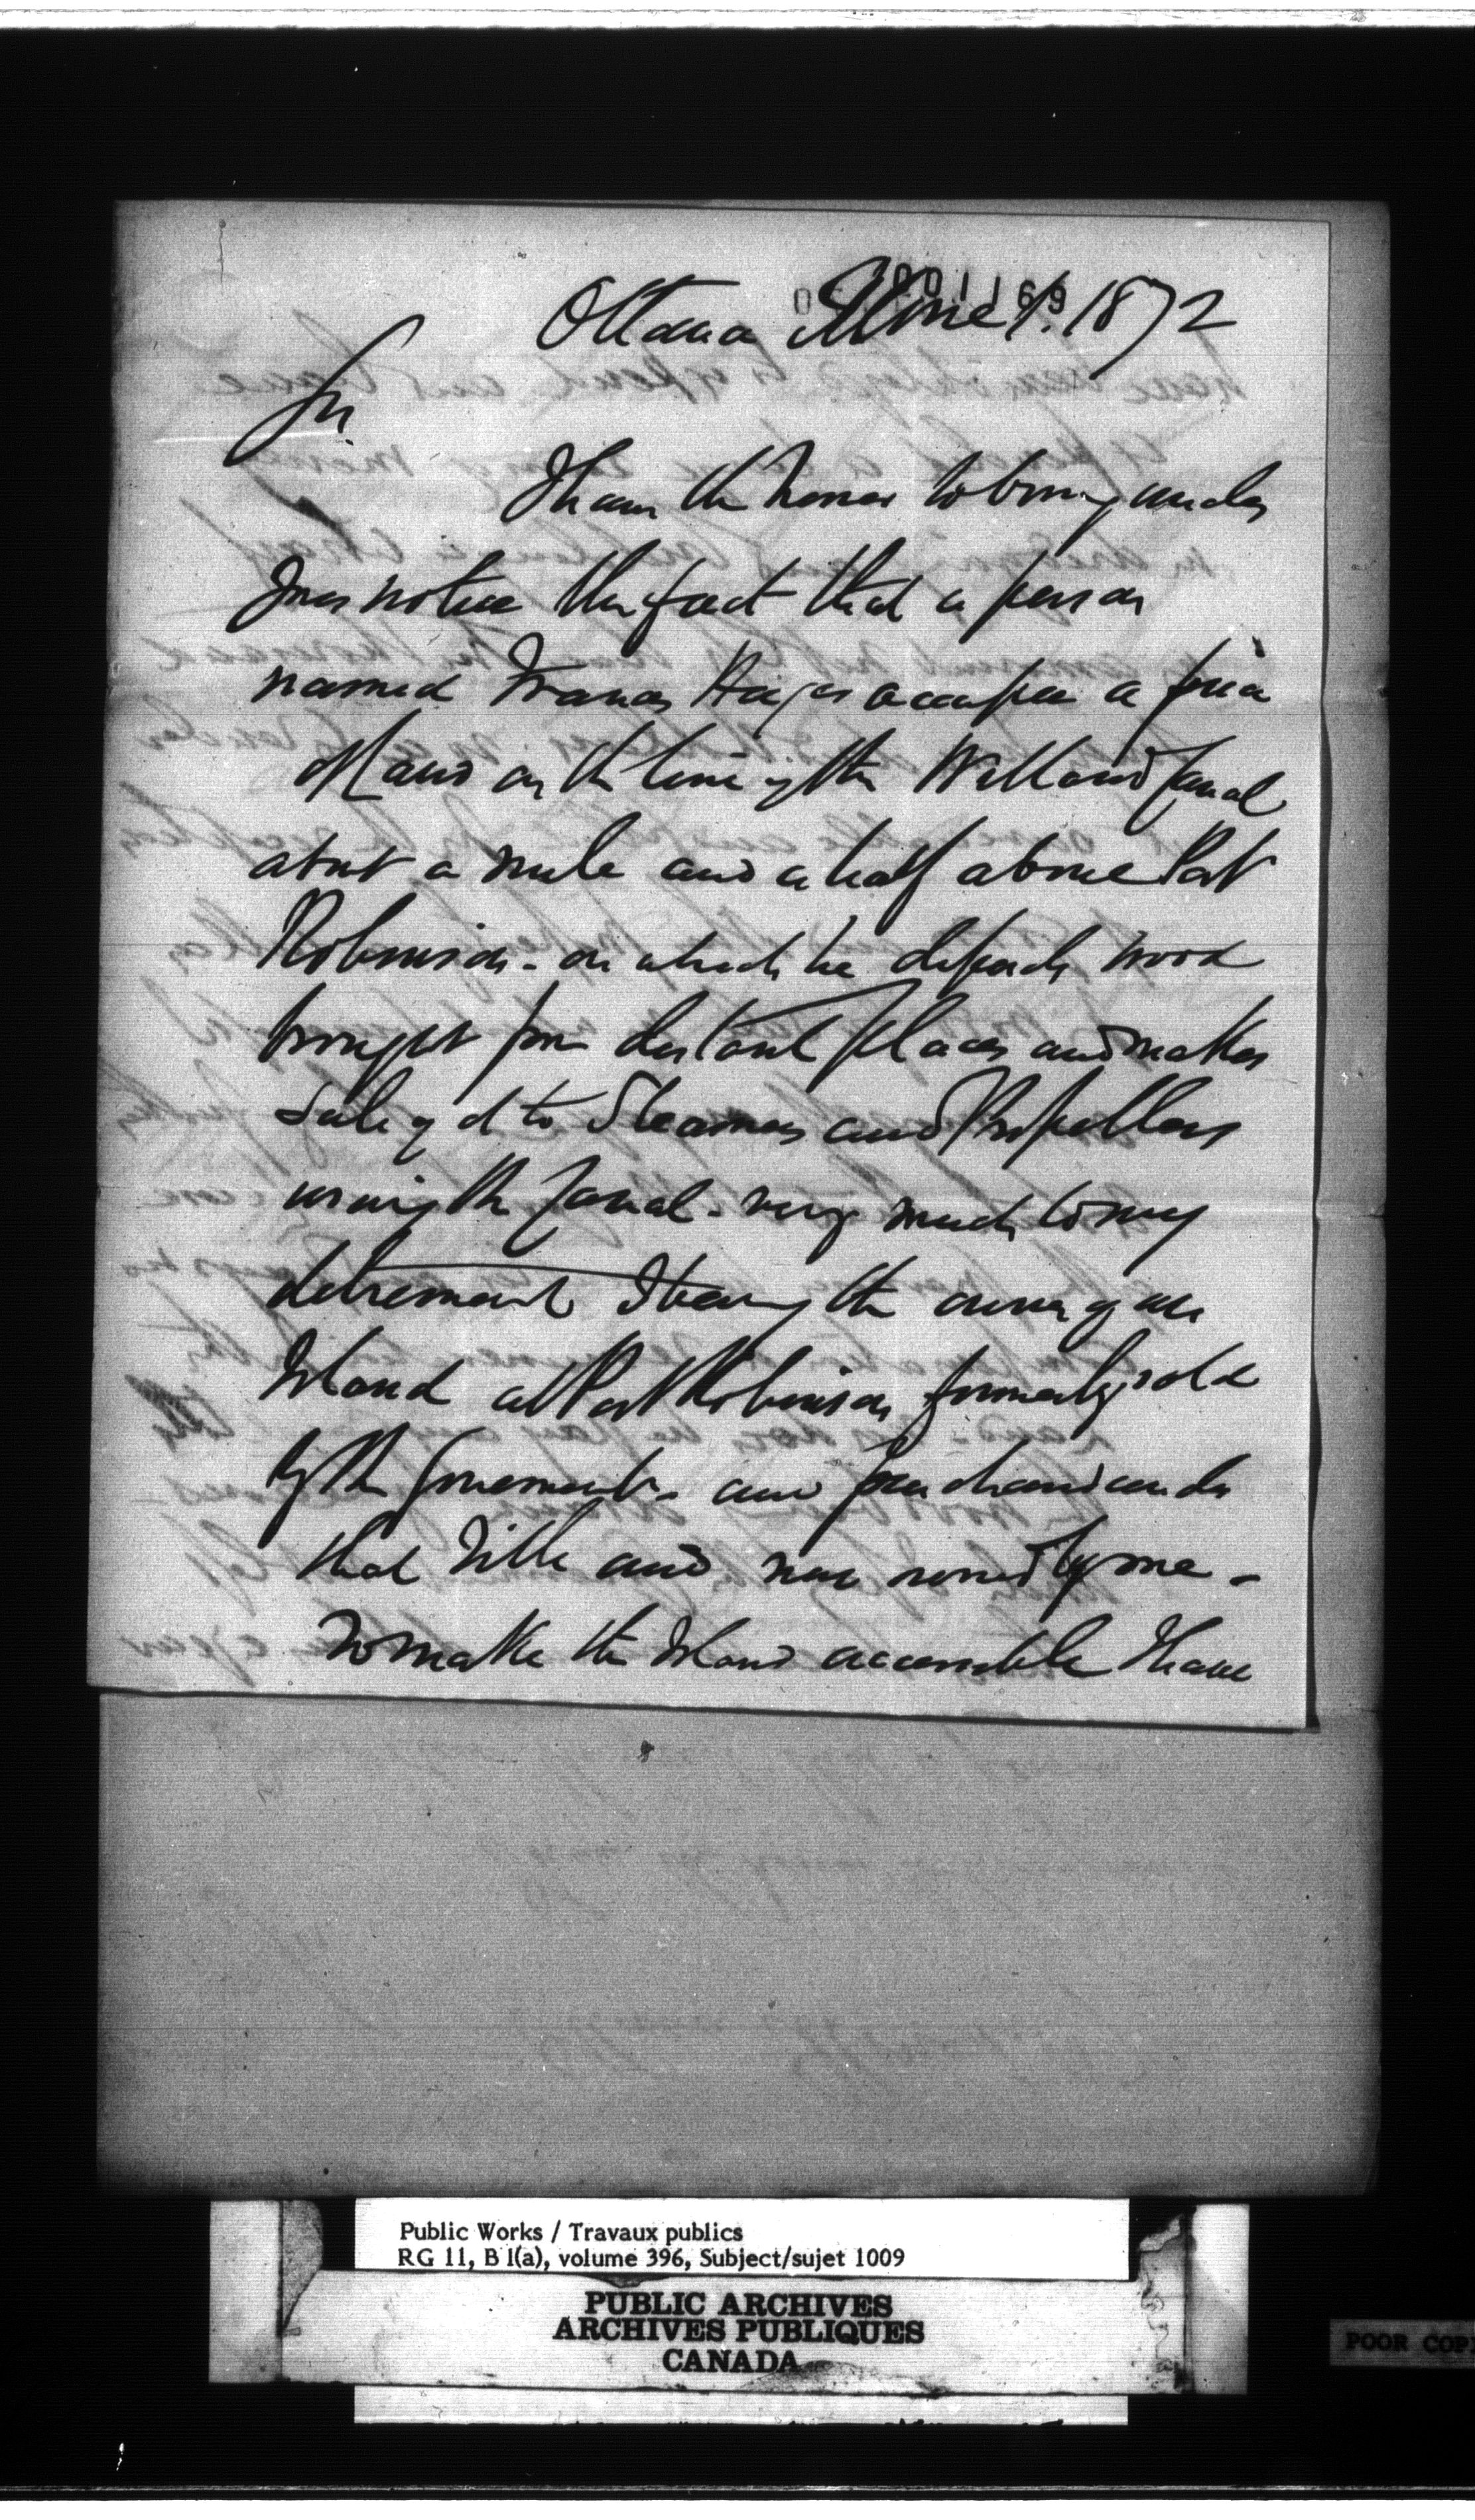 Ottawa June 1. 1872
001169
Sir
I have the honor to bring under
your notice the fact that a person
named Francis occupies a piece
of land on the line of the Welland Canal
about a mile and a half above Port
Robinson - on which he deposits wood
brought from distant places and makes
sale of it to Steamers and Propellers
using the Canal - very much to my
detriment I being the owner of an
Island at Port Robinson formerly sold
by the Government - and purchased under
that Title and now owned by me -
To make the Island accessible I have
Public Works / Travaux publics
RG 11, B1(a), volume 396, Subject/sujet 1009
PUBLIC ARCHIVES
ARCHIVES PUBLIQUES
CANADA
POOR COP